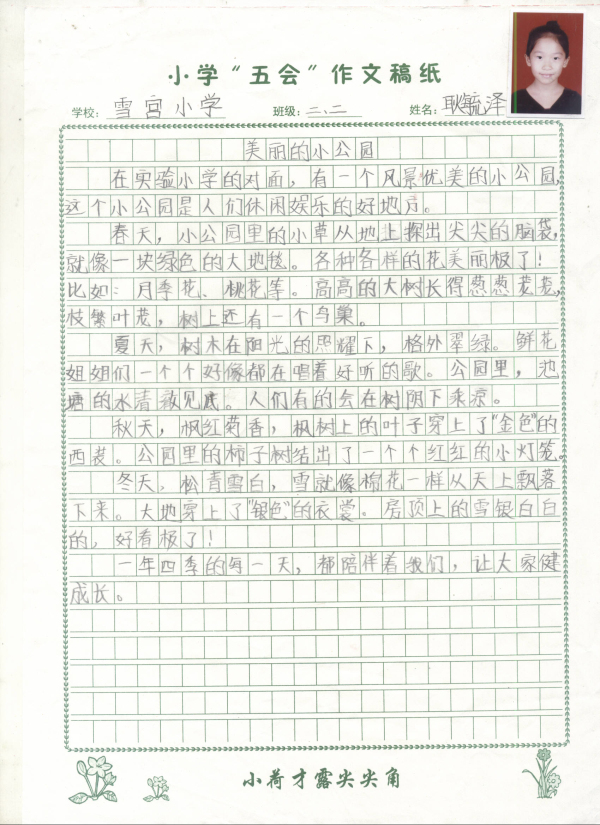 小学“五会”作文稿纸
学校：雪宫小学 班级：二、二 姓名：耿毓泽
美丽的小公园
在实验小学的对面，有一个风景优美的小公园，
这个小公园是人们休闲娱乐的好地方。
春天，小公园里的小草从地上探出尖尖的脑袋，
就像一块绿色的大地毯。各种各样的花美丽极了！
比如：月季花、桃花等。高高的大树长得葱葱茏茏，
枝繁叶茂，树上还有一个鸟巢。
夏天，树木在阳光的照耀下，格外翠绿。鲜花
姐姐们一个个好像都在唱着好听的歌。公园里，池
塘的水清澈见底。人们有的会在树阴下乘凉。
秋天，枫红菊香，枫树上的叶子穿上了“金色”的
西装。公园里的柿子树结出了一个个红红的小灯笼。
冬天，松青雪白，雪就像棉花一样从天上飘落
下来。大地穿上了“银色”的衣裳。房顶上的雪银白白
的，好看极了！
一年四季的每一天，都陪伴着我们，让大家健
成长。
小荷才露尖尖角